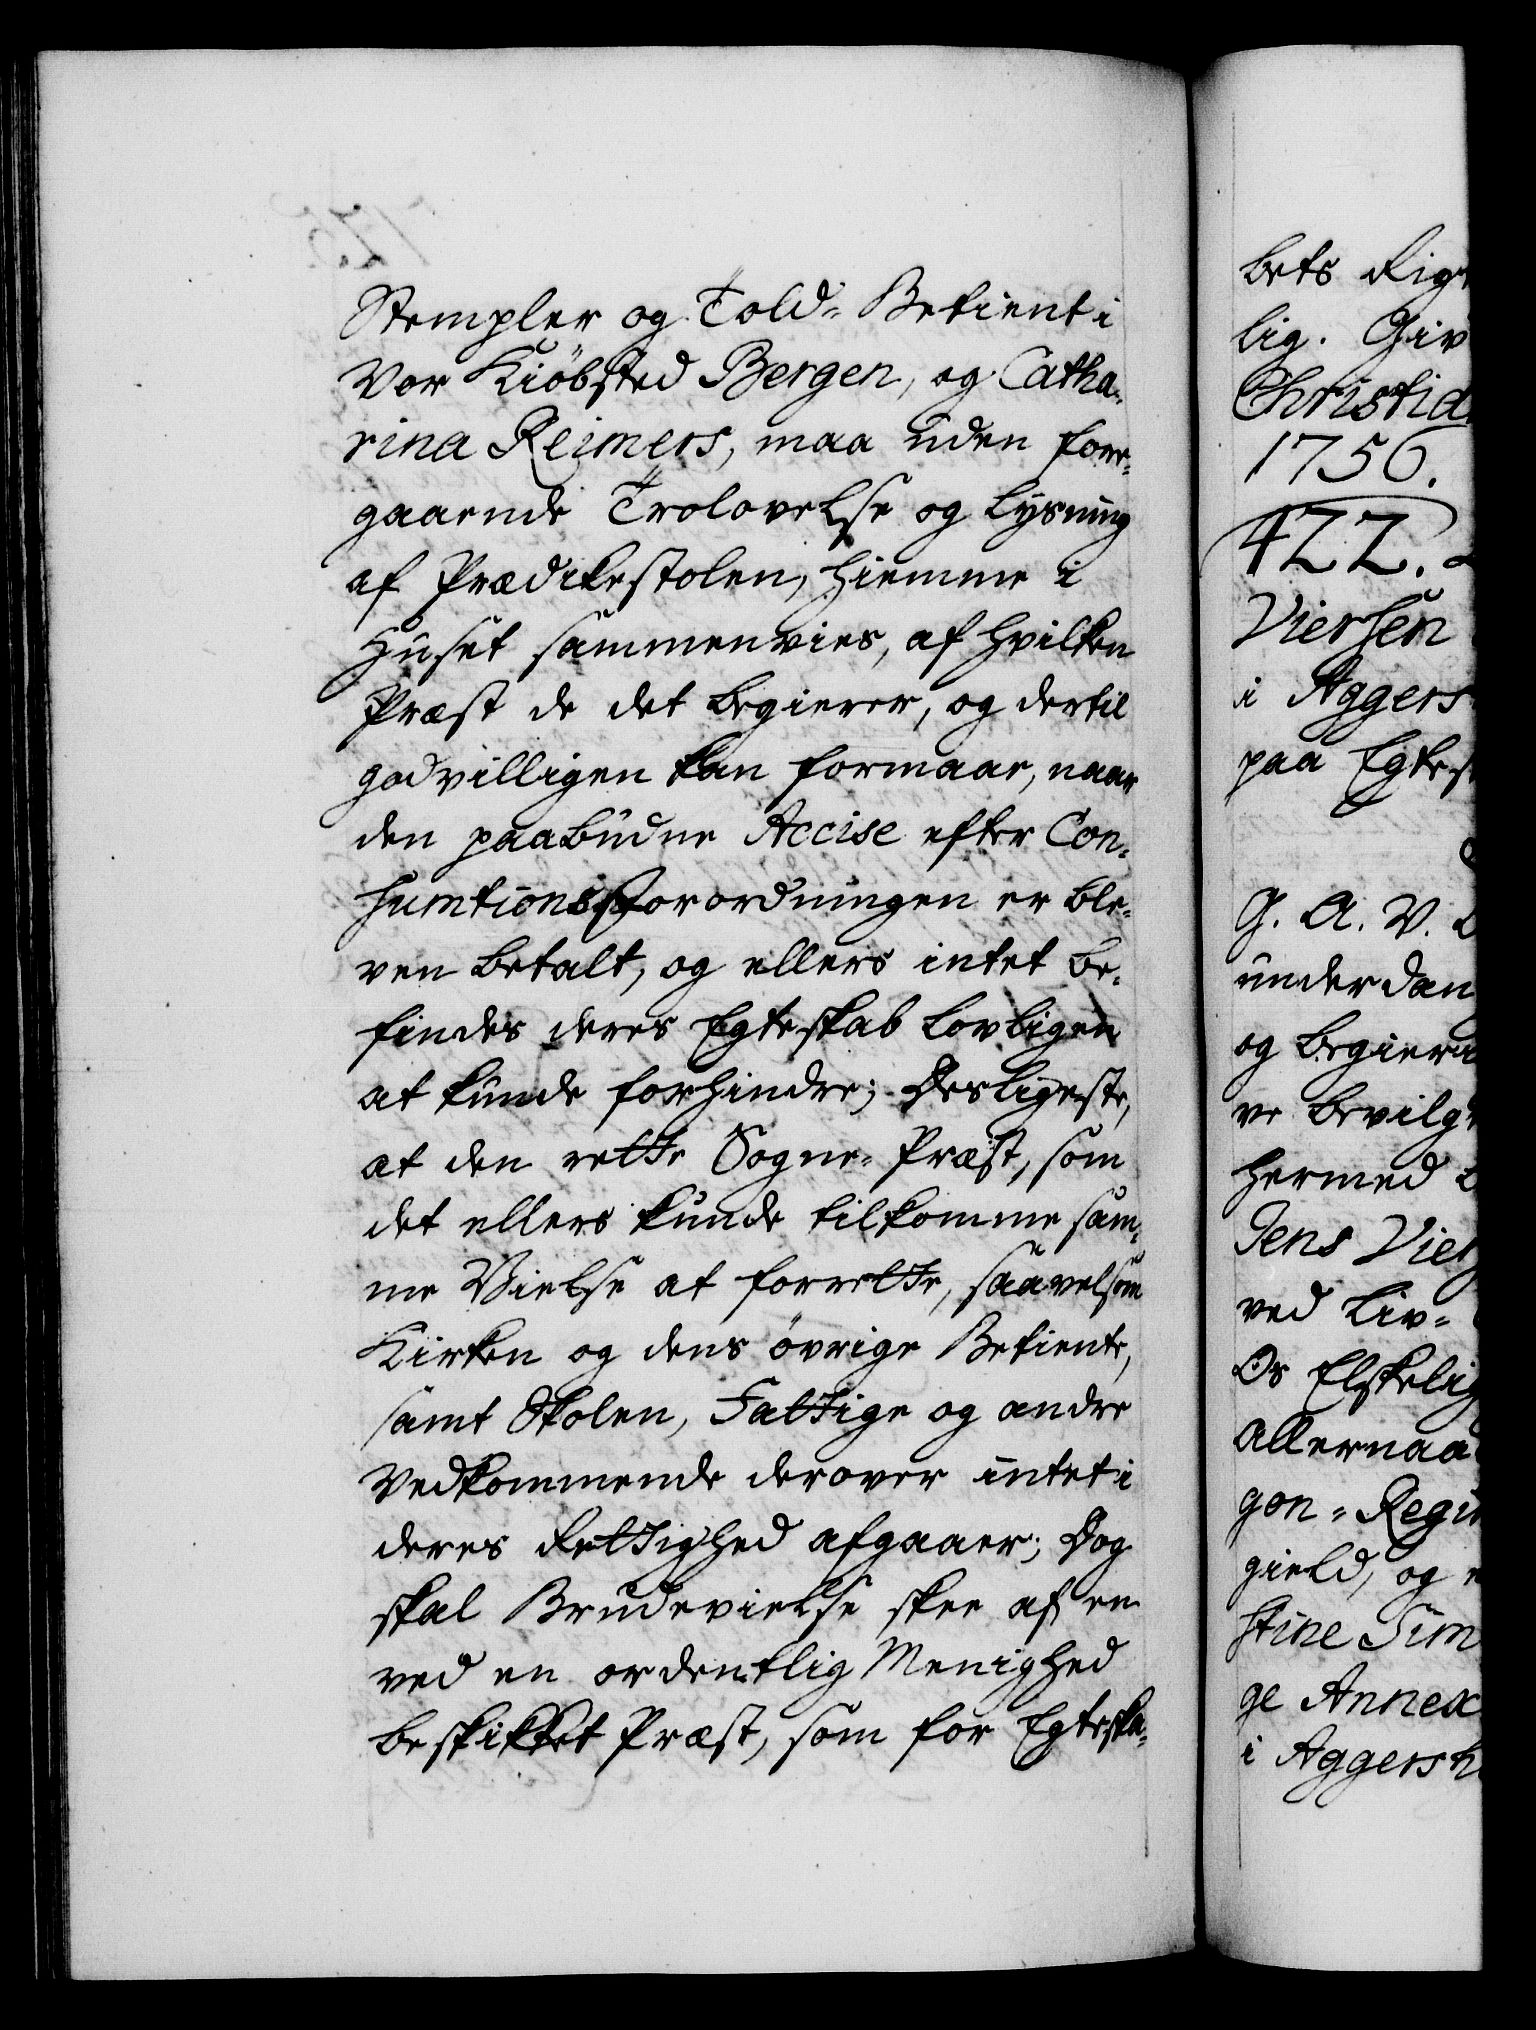 Stempler og Told- Betient i
Vor Kiöbsted Bergen, og Catha-
rina Reimers, maa uden fore-
gaaende Trolovelse og Lysning
af Prædikestolen, hiemme i
Huset sammenvies, af hvilken
Præst de det begierer, og dertil
godvilligen kan formaae, naar
den paabudne Accise efter Con-
sumtions Forordningen er ble-
ven betalt, og ellers intet be-
findes deres Egteskab lovligen
at kunde forhindre; Desligeste,
at den rette Sogne- Præst, som
det ellers kunde tilkomme sam-
me Vielse at forrette, saavelsom
Kirken og dens övrige Betiente,
samt Skolen, Fattige og andre
Vedkommende derover intet i
deres Rettighed afgaaer; Dog
skal Brudevielse skee af en
ved en ordentlig Menighed
beskikket Præst, som for Egteska-
bets Rigt
lig. Giv
Christia
1756.
422.
Viersen
i Aggers
paa Egtes
G. A. V.
underdan
og begiera
ve bevilg
hermed
Jens Vier
ved Liv-
Os Elskelig
allernaa
gen-Regi
gield, og
stine Sim
ge Annex
i Aggersh